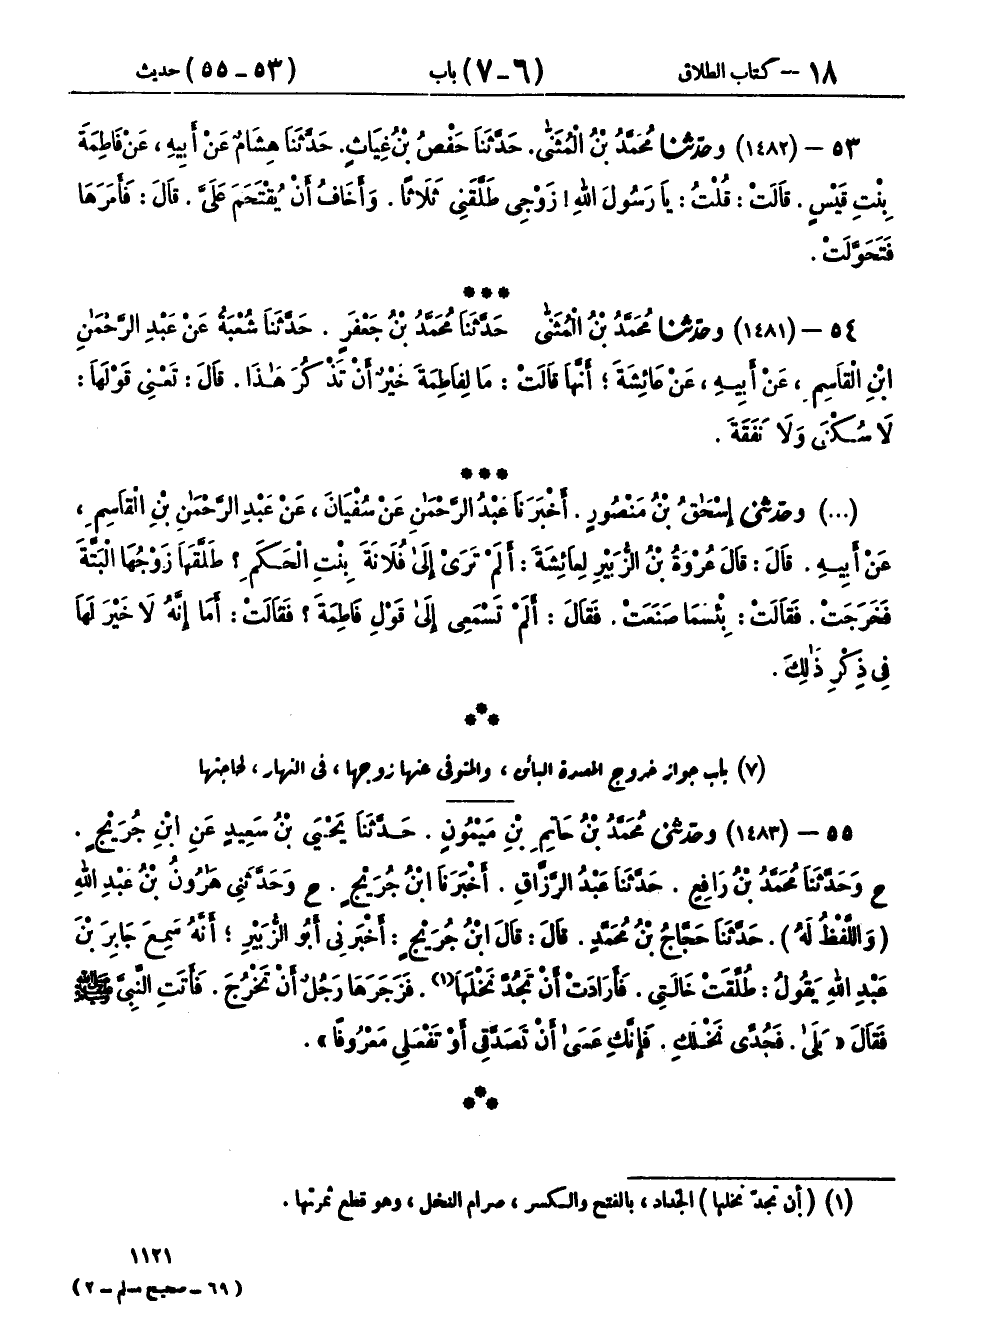 ١٨ – كتاب الطلاق (٦-٧) باب (٥٣ – ٥٥) حديث
٥٣ – (١٤٨٢) وحدثنا مُحَمَّدُ بْنُ الْمُثَنَّىٰ. حَدَّثَنَا حَفْصُ بْنُ غِيَاثٍ. حَدَّثَنَا هِشَامٌ عَنْ أَبِيهِ ، عَنْ فَاطِمَةَ
بِنْتِ قَيْسٍ . قَالَتْ : قُلْتُ : يَا رَسُولَ اللهِ ! زَوْجِي طَلَّقَنِي ثَلَاثًا . وَأَخَافُ أَنْ يُقْتَحَمَ عَلَيَّ . قَالَ : فَأَمَرَهَا
فَتَحَوَّلَتْ .
***
٥٤ – (١٤٨١) وحدثنا مُحَمَّدُ بْنُ الْمُثَنَّىٰ حَدَّثَنَا مُحَمَّدُ بْنُ جَعْفَرٍ . حَدَّثَنَا شُعْبَةُ عَنْ عَبْدِ الرَّحْمَٰنِ
ابْنِ الْقَاسِمِ ، عَنْ أَبِيهِ ، عَنْ عَائِشَةَ ؛ أَنَّهَا قَالَتْ : مَا لِفَاطِمَةَ خَيْرٌ أَنْ تَذْكُرَ هَٰذَا . قَالَ : تَعْنِي قَوْلَهَا :
لَا سُكْنَى وَلَا نَفَقَةَ .
***
(...) وحدثني إِسْحَٰقُ بْنُ مَنْصُورٍ . أَخْبَرَنَا عَبْدُ الرَّحْمَٰنِ عَنْ سُفْيَانَ ، عَنْ عَبْدِ الرَّحْمَٰنِ بْنِ الْقَاسِمِ ،
عَنْ أَبِيهِ . قَالَ : قَالَ عُرْوَةُ بْنُ الزُّبَيْرِ لِعَائِشَةَ : أَلَمْ تَرَىْ إِلَىٰ فُلَانَةَ بِنْتِ الْحَكَمِ ؟ طَلَّقَهَا زَوْجُهَا الْبَتَّةَ
فَخَرَجَتْ . فَقَالَتْ : بِئْسَمَا صَنَعَتْ . فَقَالَ : أَلَمْ تَسْمَعِي إِلَىٰ قَوْلِ فَاطِمَةَ ؟ فَقَالَتْ : أَمَا إِنَّهُ لَا خَيْرَ لَهَا
فِي ذِكْرِ ذَٰلِكَ .
***
(٧) باب جواز خروج المعتدة البائن ، والمتوفى عنها زوجها ، فى النهار ، لحاجتها
٥٥ – (١٤٨٣) وحدثني مُحَمَّدُ بْنُ حَاتِمِ بْنِ مَيْمُونٍ . حَدَّثَنَا يَحْيَىٰ بْنُ سَعِيدٍ عَنِ ابْنِ جُرَيْجٍ .
ح وَحَدَّثَنَا مُحَمَّدُ بْنُ رَافِعٍ . حَدَّثَنَا عَبْدُ الرَّزَّاقِ . أَخْبَرَنَا ابْنُ جُرَيْجٍ . ح وَحَدَّثَنِي هَٰرُونُ بْنُ عَبْدِ اللهِ
(وَاللَّفْظُ لَهُ) . حَدَّثَنَا حَجَّاجُ بْنُ مُحَمَّدٍ . قَالَ : قَالَ ابْنُ جُرَيْجٍ : أَخْبَرَنِي أَبُو الزُّبَيْرِ ؛ أَنَّهُ سَمِعَ جَابِرَ بْنَ
عَبْدِ اللهِ يَقُولُ : طُلِّقَتْ خَالَتِي . فَأَرَادَتْ أَنْ تَجُدَّ نَخْلَهَا(١) . فَزَجَرَهَا رَجُلٌ أَنْ تَخْرُجَ . فَأَتَتِ النَّبِيَّ ﷺ
فَقَالَ « بَلَىٰ . فَجُدِّى نَخْلَكِ . فَإِنَّكِ عَسَىٰ أَنْ تَصَدَّقِي أَوْ تَفْعَلِي مَعْرُوفًا » .
***
(١) (أن تجدّ نخلها) الجَداد ، بالفتح والكسر ، صرام النخل ، وهو قطع ثمرتها .
١١٢١
(٦٩ – صحيح مسلم – ٢)